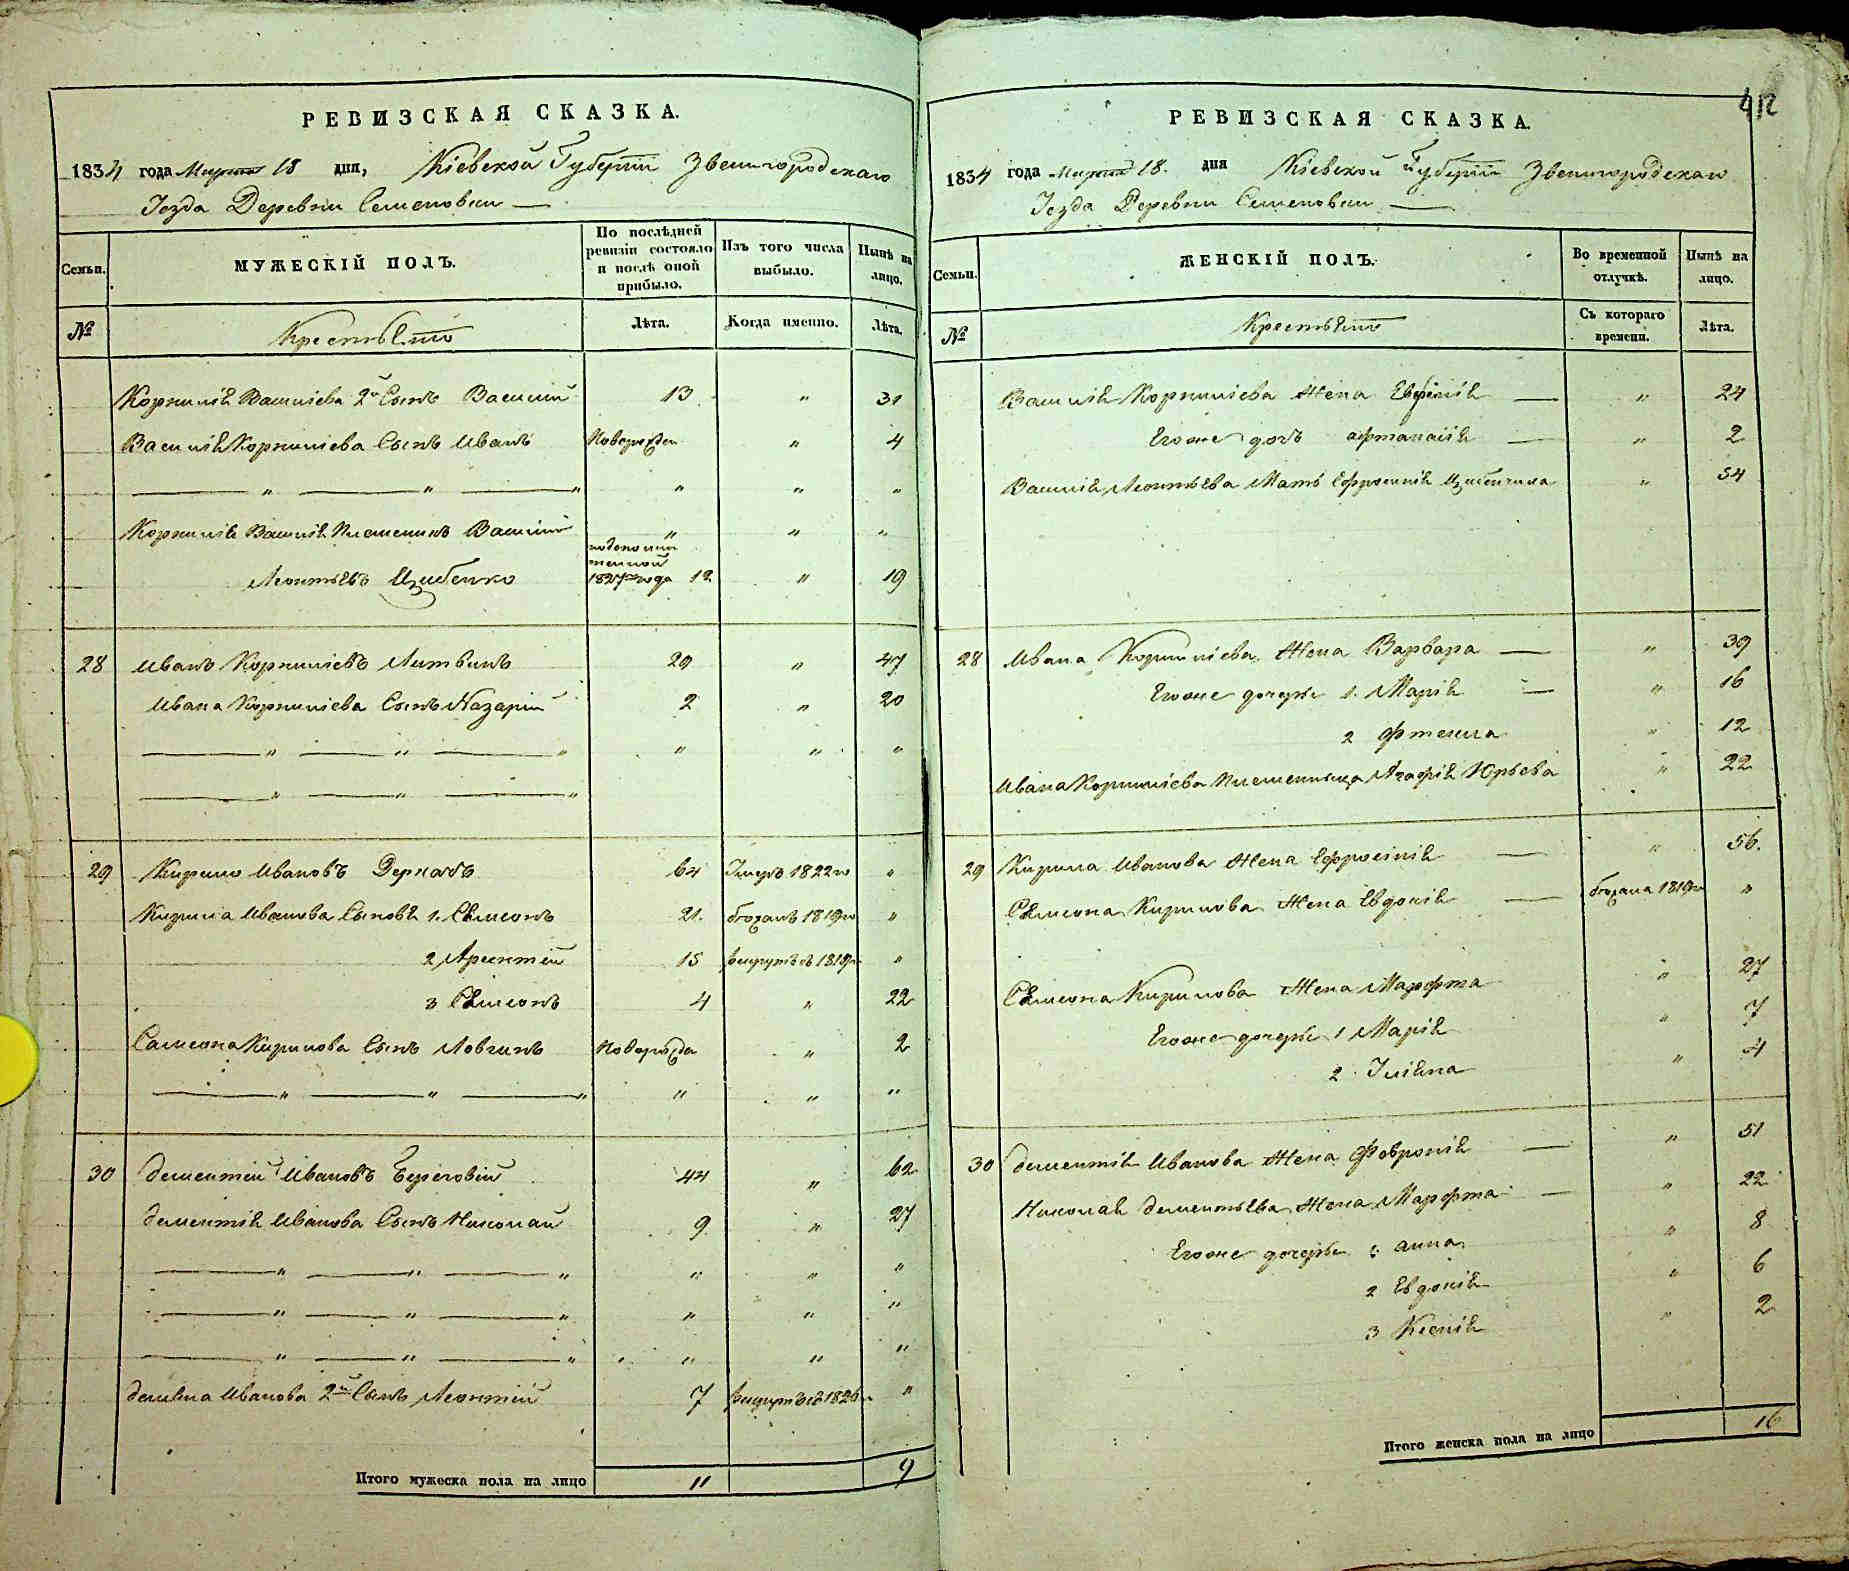 РЕВИЗСКАЯ СКАЗКА.
1834 года Марта 18 дня, Кіевской Губерніи Звенигородскаго
Уезда Деревни Семеновки
Семьи.
МУЖЕСКІЙ ПОЛЪ.
По послѣдней ревизіи состояло и послѣ оной прибыло.
Изъ того числа выбыло.
Нынѣ на лицо.
№
Крестьяне
Лѣта.
Когда именно.
Лѣта.
Корнилія Василіева 2й Сынъ Василій 13 " 31
Василія Корниліева Сынъ Иванъ Новорожден " 4
" " " " " "
Корнилія Василія Племеникъ Василій " " "
Леонтьевъ Цибенко 1827 года 12 " 19
28 Иванъ Корниліевъ Литвинъ 29 " 47
Ивана Корниліева Сынъ Назарій 2 " 20
" " " " " "
" " "
29 Кирило Ивановъ Деркачъ 64 Умеръ 1822го "
Кирила Иванова Сыновя 1. Самсонъ 21. бѣжалъ 1819го "
2 Арсентій 15 рекрутъ въ 1818го "
3 Самсонъ 4 " 22
Самсона Кирилова Сынъ Логинъ Новорожде " 2
" " " " " "
30 Дементій Ивановъ Береговій 44 " 62
Дементія Иванова Сынъ Николай 9 " 27
" " " " " "
" " " " " "
" " " " " "
Демяна Иванова 2й Сынъ Леонтій 7 рекрутъ въ 182 "
Итого мужеска пола на лицо 11 9
412
РЕВИЗСКАЯ СКАЗКА.
1834 года Марта 18. дня Кіевской Губерніи Звенигородскаго
Уезда Деревни Семеновки
Семьи.
ЖЕНСКІЙ ПОЛЪ.
Во временной отлучкѣ.
Нынѣ на лицо.
№
Крестьяне
Съ котораго времени.
Лѣта.
Василія Корниліева Жена Евфимія " 24
Егоже дочь Афтанасія " 2
Василія Леонтьева Мать Ефросинія " 54
28 Ивана Корниліева Жена Варвара " 39
Егоже дочери 1. Марія " 16
2 Фтекла " 12
Ивана Корниліева Племенныца Агафія Юрьева " 22
29 Кирила Иванова Жена Ефросинія " 56.
Самсона Кирилова Жена Евдокія бѣжала 1819го "
Самсона Кирилова Жена Марфта " 27
Егоже дочери 1 Марія " 7
2. Уліяна " 4
30 Дементія Иванова Жена Февронія " 51
Николая Дементьева Жена Марфта " 22
Егоже дочери 1. Анна " 8
2 Евдокія " 6
3 Ксенія " 2
Итого женска пола на лицо 16